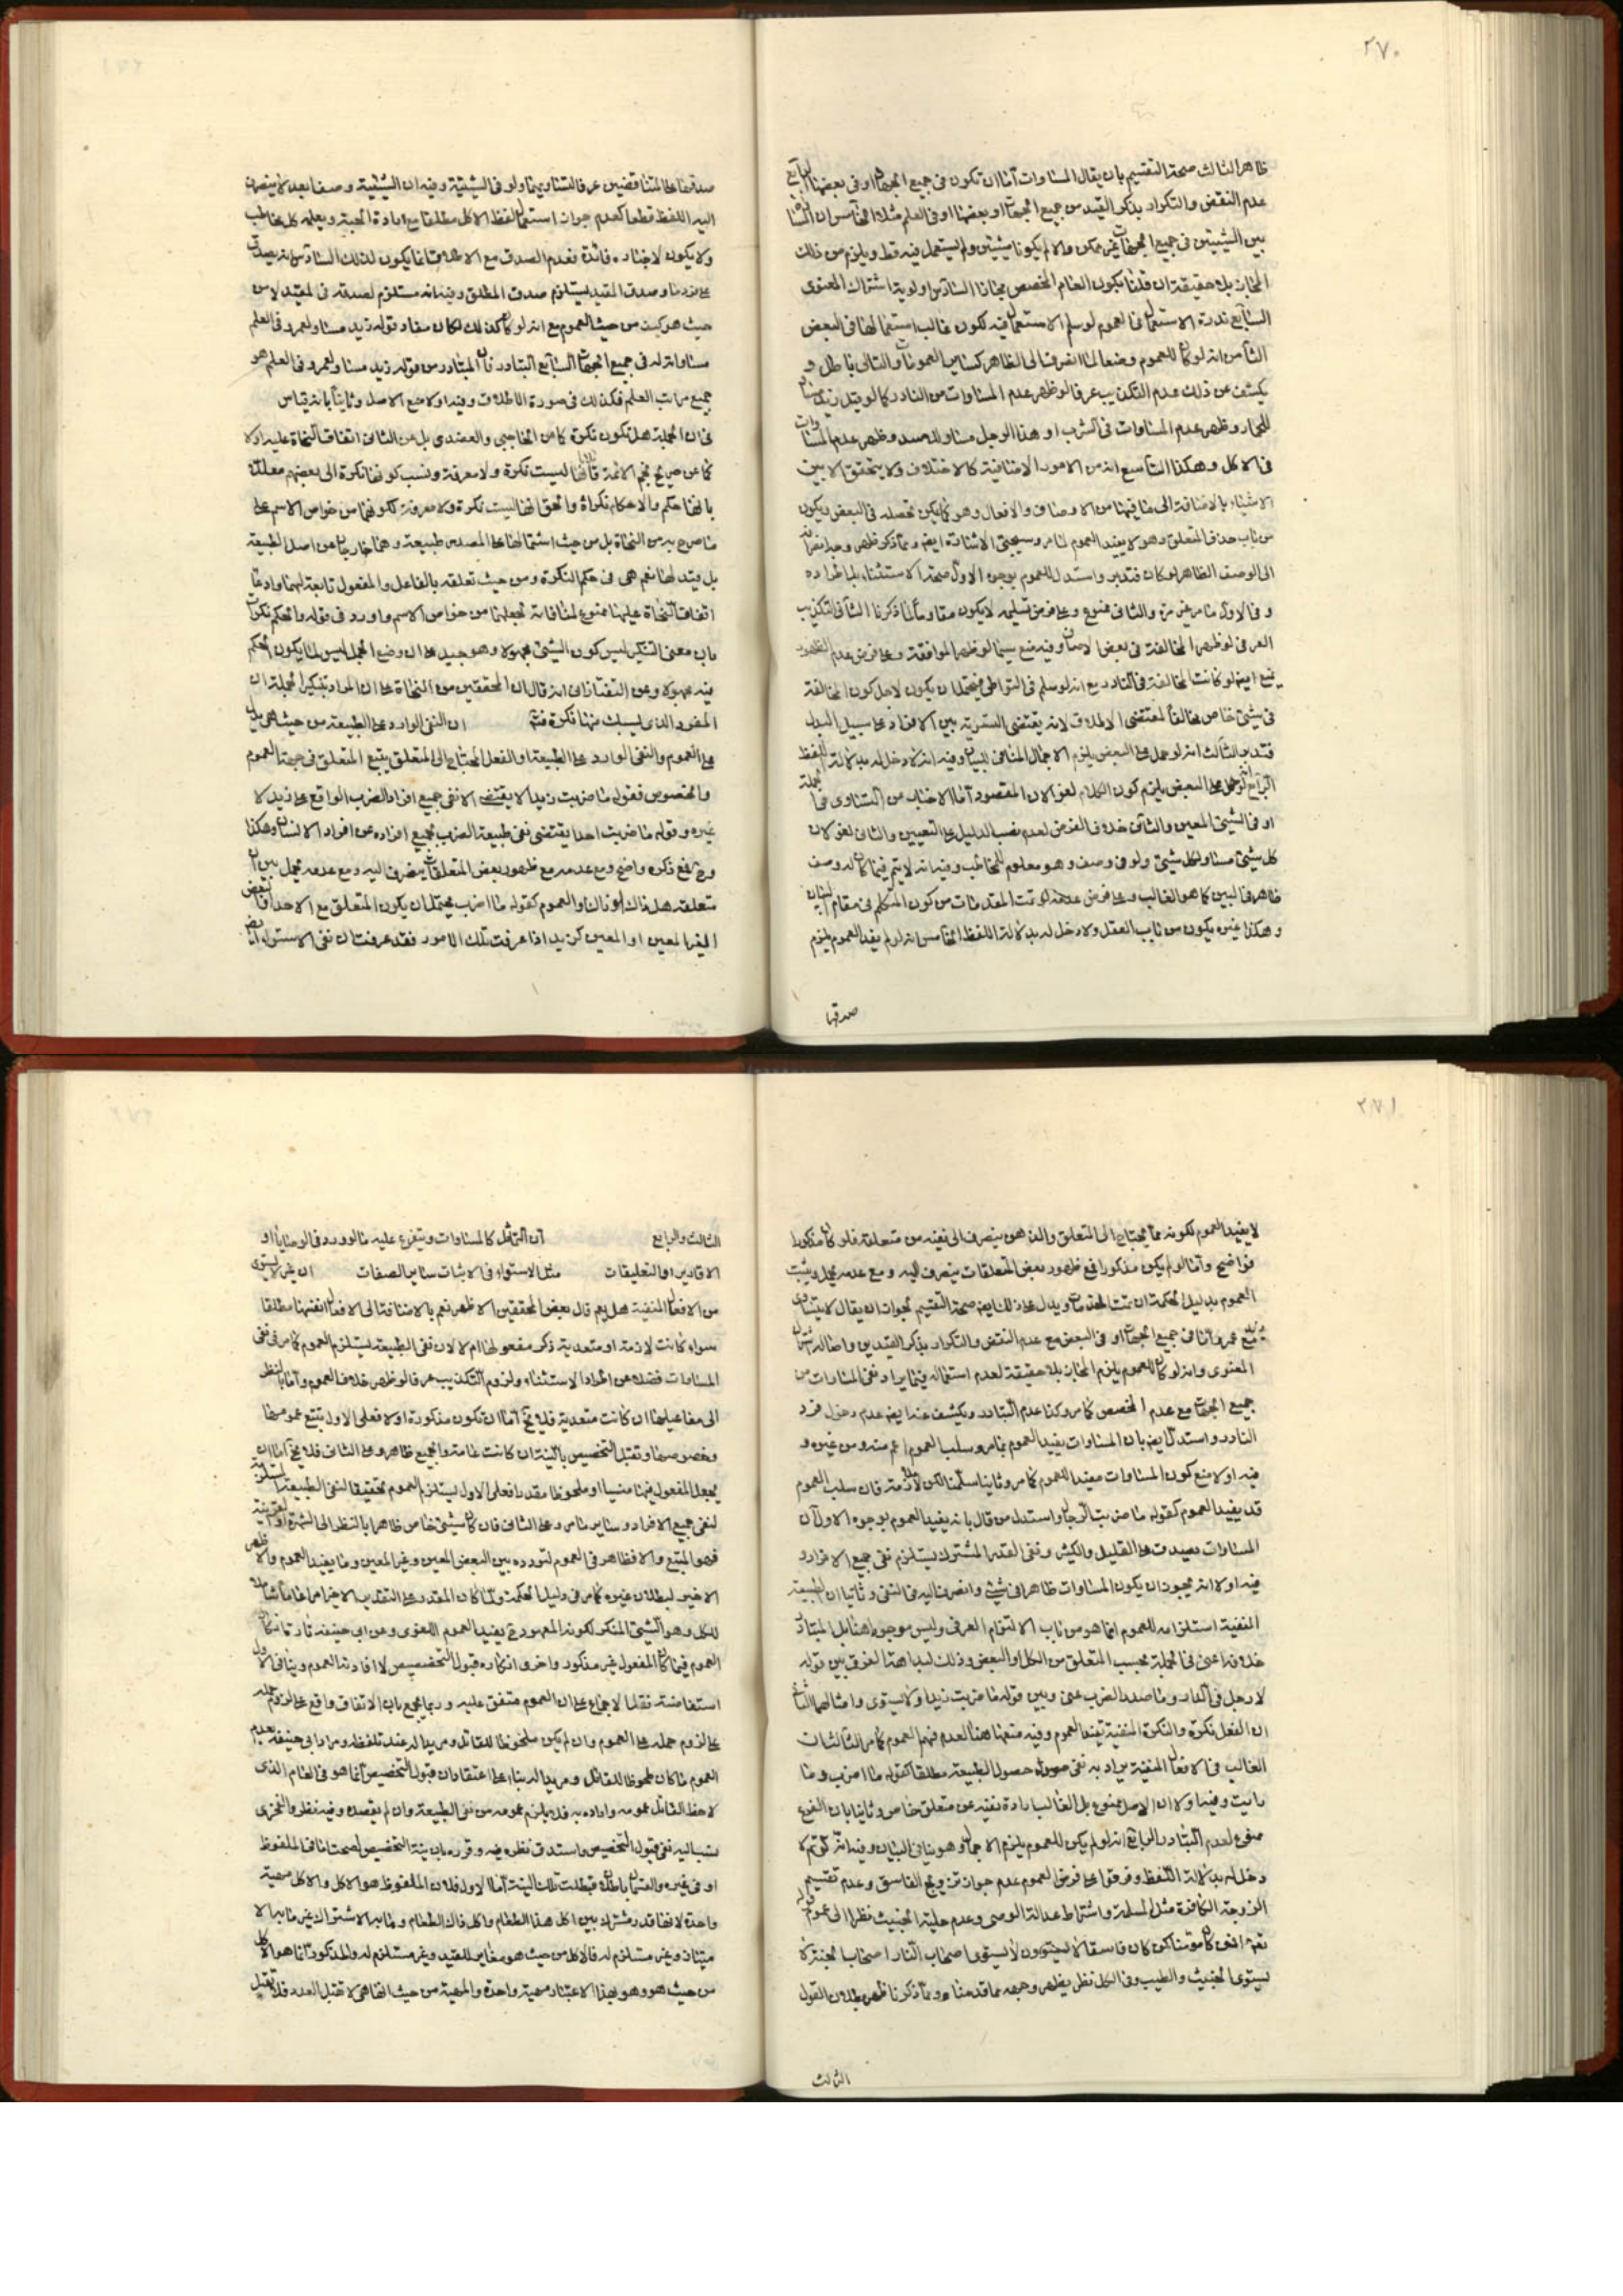 ٢٧٠
ظاهر الثالث صحة التقسيم بان يقال المساوات اما ان تكون في جميع الجهات او في بعضها الرابع
عدم النقض والتكرار بذكر القيد من جميع الجهات او بعضها او في العلم مثلا الخامس ان
بين الشيئين في جميع الجهات غير ممكن والا لم يكونا شيئين ولم يستعمل فيه قط ويلزم من ذلك
المجاز بلا حقيقة ان قلنا بكون العام المخصص مجازا السادس اولوية اشتراك المعنوى
السابع ندرة الاستعمال في العموم لو سلم الاستعمال فيه لكون غالب استعمالها في البعض
الثامن انه لو كان للعموم وضعا لما انصرف الى الظاهر كساير العمومات والتالى باطل و
يكشف عن ذلك عدم التكذيب عرفا لو ظهر عدم المساوات من النادر كما لو قيل زيد
للحمار وظهر عدم المساوات في الشرب او هذا الرجل مساو للاسد وظهر عدم المساوات
في الاكل وهكذا التاسع انه من الامور الاضافية كالاختلاف ولا يتحقق الا بين
الاشياء بالاضافة الى ما فيها من الاوصاف والافعال وهو كما يمكن تحصله في البعض ويكون
من باب حذف المتعلق وهو لا يفيد العموم لما مر وسيجئ الاشارة ايضا ومما ذكر ظهر وجه انصرافه
الى الوصف الظاهر لو كان فتدبر واستدل للعموم بوجوه الاول صحة الاستثناء بل اطراده
وفي الاول ما مر غير مرة والثاني ممنوع وعلى فرض تسليمه لا يكون مقاوما لما ذكرنا الثاني التكذيب
العرفي لو ظهر المخالفة في بعض الاوصاف وفيه منع سيما لو ظهر الموافقة وعلى فرض عدم الظهور
يمنع ايضا لو كانت المخالفة في النادر مع انه لو سلم في التواطى فيحتمل ان يكون لاجل كون المخالفة
في شيئ خاص مخالفا لمقتضى الاطلاق لانه يقتضى التسرية بين الافراد على سبيل البدل
فتدبر الثالث انه لو حمل على البعض يلزم الاجمال المنافى للبيان وفيه انه لا دخل له بدلالة اللفظ
الرابع انه لو حمل على البعض يلزم كون الكلام لغوا لان المقصود اما الاخبار من التساوى في الجملة
او في الشيئ المعين والثاني خلاف الفرض لعدم نصب الدليل على التعيين والثاني لغو لان
كل شيئ مساو لكل شيئ ولو في وصف وهو معلوم للمخاطب وفيه انه لا يتم فيما كان له وصف
ظاهر في البين كما هو الغالب وعلى فرض عدمه لو تمت المقدمات من كون المتكلم في مقام البيان
وهكذا غيره يكون من باب العقل ولا دخل له بدلالة اللفظ الخامس انه لو لم يفد العموم يلزم
صدقها
صدقهما على المتناقضين عرفا لتساويهما ولو في الشيئية وفيه ان الشيئية وصفا بعد لا ينصرف
اليه اللفظ قطعا كعدم جواز استعمال لفظ الاكل مطلقا مع ارادة الحبة ويعلمه كل مخاطب
ولا يكون لاخباره فائدة فعدم الصدق مع الاطلاق انما يكون لذلك السادس انه يصدق
على فرد ما وصدق المقيد يستلزم صدق المطلق وفيه انه مستلزم لصدقه في المقيد لا من
حيث هو كيف من حيث العموم مع انه لو كان كذلك لكان مفاد قوله زيد مساو لعمرو في العلم
مساواته له في جميع الجهات السابع التبادر فان المتبادر من قوله زيد مساو لعمرو في العلم هو
جميع مراتب العلم فكذلك في صورة الاطلاق وفيه اولا منع الاصل وثانيا بانه قياس
في ان الجملة هل تكون نكرة كما من الحاجبى والعضدى بل عن الثاني اتفاق النحاة عليه او لا
كما عن صريح نجم الائمة قائلا انها ليست نكرة ولا معرفة ونسب كونها نكرة الى بعضهم معللا
بانها حكم والاحكام نكرات والحق انها ليست نكرة ولا معرفة لكونهما من خواص الاسم على
ما صرح به من النحاة بل من حيث اشتمالها على المصدر طبيعة وهما خارجان عن اصل الطبيعة
بل قيد لها نعم هى في حكم النكرة ومن حيث تعلقه بالفاعل والمفعول تابعة لهما وادعاء
اتفاق النحاة عليها ممنوع لمنافاته لجعلهما من خواص الاسم واورد في قوله والحكم نكرات
بان معنى التنكير ليس كون الشيئ مجهولا وهو جيد على ان وضع الجمل ليس لما يكون الحكم
فيه مجهولا وعن التفتازاني انه قال ان المحققين من النحاة على ان المراد بتنكير الجملة ان
المفرد الذى يسبك منها نكرة فتم ان النفى الوارد على الطبيعة من حيث هى يدل
على العموم والنفى الوارد على الطبيعة او الفعل المحتاج الى المتعلق يتبع المتعلق في جهة العموم
والخصوص فقوله ما ضربت زيدا لا يقتضى الا نفى جميع افراد الضرب الواقع على زيد لا
غيره وقوله ما ضربت احدا يقتضى نفى طبيعة الضرب بجميع افراده عن افراد الانسان وهكذا
ومع ذكره واضح ومع عدمه مع ظهور بعض المتعلقات ينصرف اليه ومع عدمه مجمل بين
متعلقه هل ذاك او ذاك او العموم كقوله ما اضرب يحتمل ان يكون المتعلق مع الاحد او البعض
الغير المعين او المعين كزيد اذا عرفت تلك الامور فقد عرفت ان نفى الاستواء ايضا
٢٧١
لا يفيد العموم لكونه مما يحتاج الى المتعلق والذهن ينصرف الى نفيه من متعلقه فلو كان مذكورا
فواضح واما لو لم يكن مذكورا فمع ظهور بعض المتعلقات ينصرف اليه ومع عدمه مجمل ويثبت
العموم بدليل الحكمة ان تمت المقدمات ويدل على ذلك ايضا صحة التقسيم لجواز ان يقال لا يتساوى
زيد مع عمرو اما في جميع الجهات او في البعض مع عدم النقض والتكرار بذكر القيدين واصالة اشتراك
المعنوى وانه لو كان للعموم يلزم المجاز بلا حقيقة لعدم استعماله فيما يراد نفى المساوات من
جميع الجهات مع عدم المخصص كما مر وكذا عدم التبادر ويكشف عنه ايضا عدم دخول فرد
النادر واستدل ايضا بان المساوات يفيد العموم بما مر وسلب العموم اعم منه ومن غيره و
فيه اولا منع كون المساوات مفيدا للعموم كما مر وثانيا سلمنا لكن لا ملازمة فان سلب العموم
قد يفيد العموم كقوله ما ضربت الرجال واستدل من قال بانه يفيد العموم بوجوه الاول ان
المساوات يصدق على القليل والكثير ونفى القدر المشترك يستلزم نفى جميع الافراد و
فيه اولا انه يجوز ان يكون المساوات ظاهرا في شيئ وانصرف اليه في النفى وثانيا ان الطبيعة
المنفية استلزامه للعموم انما هو من باب الالتزام العرفى وليس موجودا هنا بل المتبادر
خلافه اعنى في الجملة بحسب المتعلق من الكل او البعض وذلك لبداهة الفرق بين قوله
لا رجل في الدار وما صدر الضرب عنى وبين قوله ما ضربت زيدا ولا يستوى وامثالهما الثاني
ان الفعل نكرة والنكرة المنفية يفيد العموم وفيه منعها هنا لعدم فهم العموم كما مر الثالث ان
الغالب في الافعال المنفية يراد به نفى حصول الطبيعة مطلقا كقوله ما اضرب وما
رايت وفيه اولا ان الاصل ممنوع بل الغالب ارادة نفيه عن متعلق خاص وثانيا بان الفرع
ممنوع لعدم التبادر الرابع انه لو لم يكن للعموم يلزم الاجمال وهو ينافى البيان وفيه انه لو تم لا
دخل له بدلالة اللفظ وفرقوا على فرض العموم عدم جواز تزويج الفاسق وعدم تقسيم
الزوجة الكافرة مثل المسلمة واشتراط عدالة الوصى وعدم حلية الخبيث نظرا الى عموم قوله
تعالى افمن كان مؤمنا كمن كان فاسقا لا يستوون لا يستوى اصحاب النار واصحاب الجنة لا
يستوى الخبيث والطيب وفي الكل نظر يظهر وجهه مما قدمنا ومما ذكرنا ظهر بطلان القول
الثالث
الثالث والرابع ان التماثل كالمساوات ويتفرع عليه ما لو ورد في الوصايا او
الاقادير او التعليقات مثل الاستواء في الاثبات ساير الصفات ان غير لا يستوى
من الافعال المنفية هل يعم قال بعض المحققين الاظهر نعم بالاضافة الى الافعال انفسها مطلقا
سواء كانت لازمة او متعدية ذكر مفعولها ام لا لان نفى الطبيعة يستلزم العموم كما مر في نفى
المساوات فضلا عن اطراد الاستثناء ولزوم التكذيب عرفا لو ظهر خلاف العموم واما بالنظر
الى مفاعيلها ان كانت متعدية فلا يخ اما ان تكون مذكورة او لا فعلى الاول يتبع عمومها
وخصوصها وتقبل التخصيص بالنية ان كانت عامة والجميع ظاهر وعلى الثاني فلا يخ اما ان
يجعل المفعول فيها منسيا او ملحوظا مقدرا فعلى الاول يستلزم العموم تحقيقا لنفى الطبيعة
لنفى جميع الافراد وساير ما مر وعلى الثاني فان كان شيئ خاص ظاهرا بالنظر الى الشهرة او القرينة
فهو المتبع والا فظاهر في العموم لتردده بين البعض المعين وغير المعين وما يفيد العموم والاظهر
الاخير لبطلان غيره كما مر في دليل الحكمة ولما كان المقدر على التقدير الاخير امرا عاما شاملا
للكل وهو الشيئ المنكر لكونه المعهود يفيد العموم اللغوى وعن ابى حنيفة تارة انكار
العموم فيما كان المفعول غير مذكور واخرى انكاره قبول التخصيص لا افادته العموم وينافى الاول
استفاضة نقل الاجماع على ان العموم متفق عليه وربما يجمع بان الاتفاق واقع على لزوم حمله
على لزوم حمله على العموم وان لم يكن ملحوظا للقائل ومريدا له عند تلفظه ومراد ابى حنيفة بعدم
العموم ما كان ملحوظا للقائل ومريدا له بناء على اعتقاد ان قبول التخصيص انما هو في العام الذى
لاحظ القائل عمومه واراده به فلا يلزم عمومه من نفى الطبيعة وان لم يقصد وفيه نظر والفخرى
نسب اليه نفى قبول التخصيص واستدق نظره فيه وقرره بان نية التخصيص لو صحت اما في الملفوظ
او في غيره والقسمان باطلان فبطلت تلك النية اما الاول فلان الملفوظ هو الاكل والاكل مهية
واحدة لانها قدر مشترك بين اكل هذا الطعام واكل ذاك الطعام وما به الاشتراك غير ما به الا
متياز وغير مستلزم له فالاكل من حيث هو مغاير للقيد وغير مستلزم له والمذكور انما هو الاكل
من حيث هو وهو بهذا الاعتبار مهية واحدة والمهية من حيث انها هى لا تقبل العدد فلا تقبل